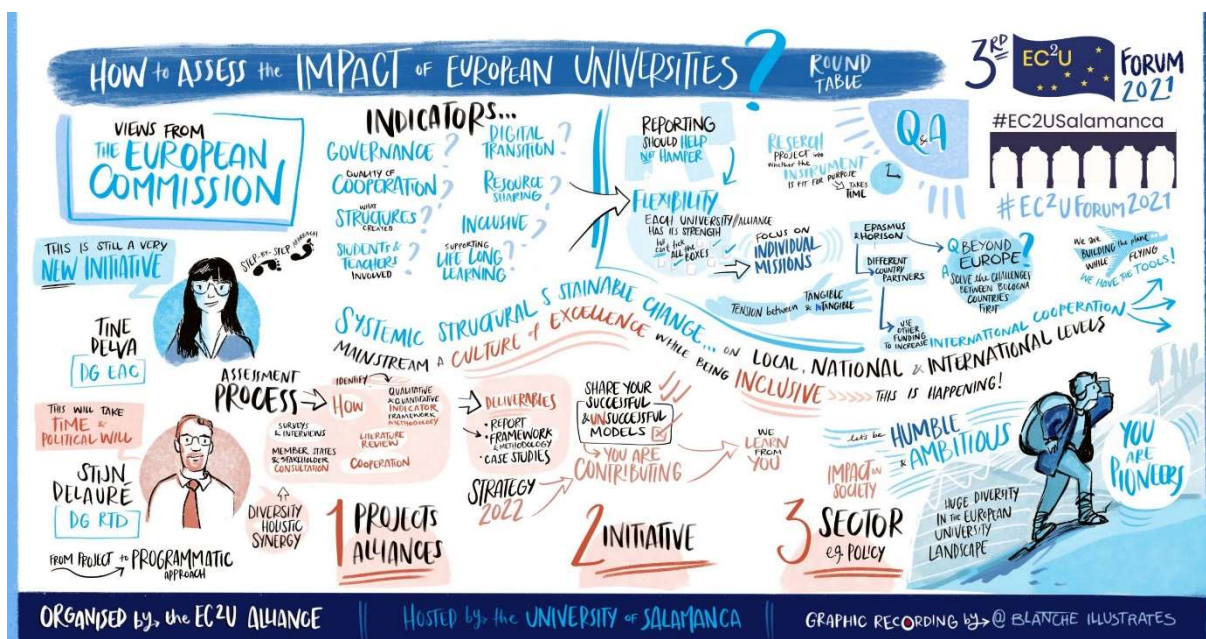 HOW to ASSESS the IMPACT of EUROPEAN UNIVERSITIES?
ROUND
TABLE
3RD
EC²U
FORUM
2021
#EC2USalamanca
#EC2UFORUM2021
VIEWS FROM
THE EUROPEAN
COMMISSION
THIS IS STILL A VERY
NEW INITIATIVE
STEP-BY-STEP APPROACH
TINE
DELVA
DG EAC
THIS WILL TAKE
TIME &
POLITICAL WILL
STIJN
DELAURÉ
DG RTD
FROM PROJECT to PROGRAMMATIC
APPROACH
INDICATORS...
GOVERNANCE?
QUALITY OF
COOPERATION?
WHAT
STRUCTURES?
CREATED
STUDENTS &
TEACHERS?
INVOLVED
DIGITAL
TRANSITION?
RESOURCE
SHARING?
INCLUSIVE?
SUPPORTING
LIFE LONG
LEARNING?
REPORTING
SHOULD HELP
NOT HAMPER
FLEXIBILITY
EACH UNIVERSITY/ALLIANCE
HAS ITS STRENGTH
but
can't tick
ALL the
BOXES
FOCUS ON
INDIVIDUAL
MISSIONS
RESERCH
PROJECT into
whether the
INSTRUMENT
IS FIT FOR PURPOSE
TAKES
TIME
Q&A
ERASMUS
& HORISON
DIFFERENT
COUNTRY
PARTNERS
USE
OTHER
FUNDING
TO INCREASE INTERNATIONAL COOPERATION
Q BEYOND
EUROPE?
A SOLVE the CHALLENGES
BETWEEN BOLOGNA
COUNTRIES
FIRST
We are
BUILDING the plane
WHILE FLYING
WE HAVE the TOOLS!
TENSION between TANGIBLE
& INTANGIBLE
SYSTEMIC STRUCTURAL S STAINABLE CHANGE... ON LOCAL, NATIONAL & INTERNATIONAL LEVELS
MAINSTREAM A CULTURE of EXCELLENCE WHILE BEING INCLUSIVE
THIS IS HAPPENING!
ASSESSMENT
PROCESS
IDENTIFY
HOW
QUALITATIVE
& QUANTITATIVE
INDICATOR
FRAMEWORK
METHODOLOGY
SURVEYS
& INTERVIEWS
LITERATURE
REVIEW
MEMBER STATES
& STAKEHOLDER
CONSULTATION
COOPERATION
DIVERSITY
HOLISTIC
SYNERGY
DELIVERABLES
• REPORT
• FRAMEWORK
& METHODOLOGY
• CASE STUDIES
STRATEGY
2022
SHARE YOUR
SUCCESSFUL
& UNSUCCESSFUL
MODELS
YOU ARE
CONTRIBUTING
WE
LEARN
FROM
YOU
1 PROJECTS
ALLIANCES
2 INITIATIVE
3 SECTOR
e.g. POLICY
IMPACT on
SOCIETY
let's be
HUMBLE
& AMBITIOUS
HUGE DIVERSITY
IN the EUROPEAN
UNIVERSITY
LANDSCAPE
YOU
ARE
PIONEERS
ORGANISED by the EC2U ALLIANCE
HOSTED by the UNIVERSITY of SALAMANCA
GRAPHIC RECORDING by @ BLANCHE ILLUSTRATES